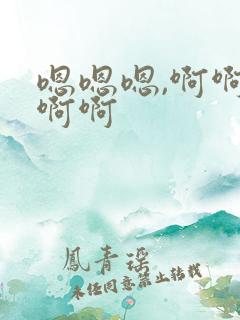 嗯嗯嗯,啊啊
啊啊
鳳青謠
未経同意禁止转载